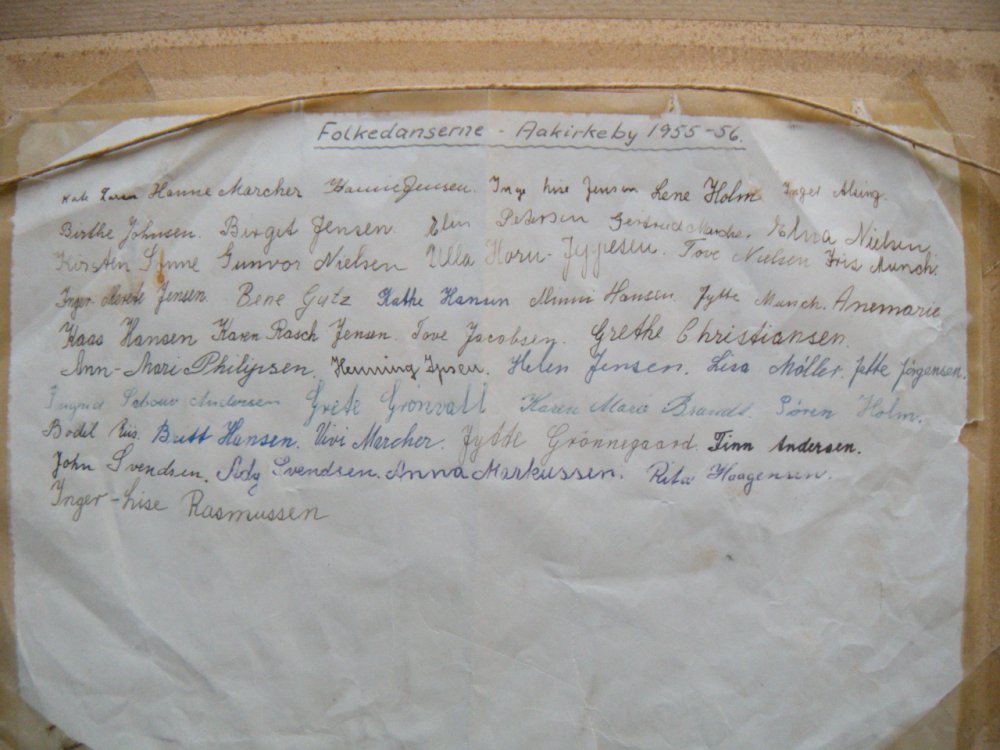 Folkedanserne - Aakirkeby 1955-56.
Hanne Marcher Hanne Jensen. Inge Lise Jensen Lene Holm Inger Alsing.
Birthe Johnsen. Birgit Jensen. Elin Petersen Gertrud Marche. Elna Nielsen,
Kirsten Sonne Gunvor Nielsen Ulla Horn-Jyppesen. Tove Nielsen Iris Munch.
Inger Merete Jensen. Bene Gytz Kathe Hansen Minni Hansen. Jytte Munch. Anemarie
Kaas Hansen Karen Rasch Jensen. Tove Jacobsen. Grethe Christiansen.
Ann-Mari Philipsen. Henning Ipsen. Helen Jensen. Lisa Møller. Jette Jørgensen.
Ingrid Schouv Andersen Grete Grönvall Karen Marie Brandt. Søren Holm.
Bodil Riis. Britt Hansen. Vivi Mercher. Jytte Grönnegaard. Finn Andersen.
John Svendsen. Ady Svendsen. Anna Markussen. Rita Haagensen.
Inger-Lise Rasmussen